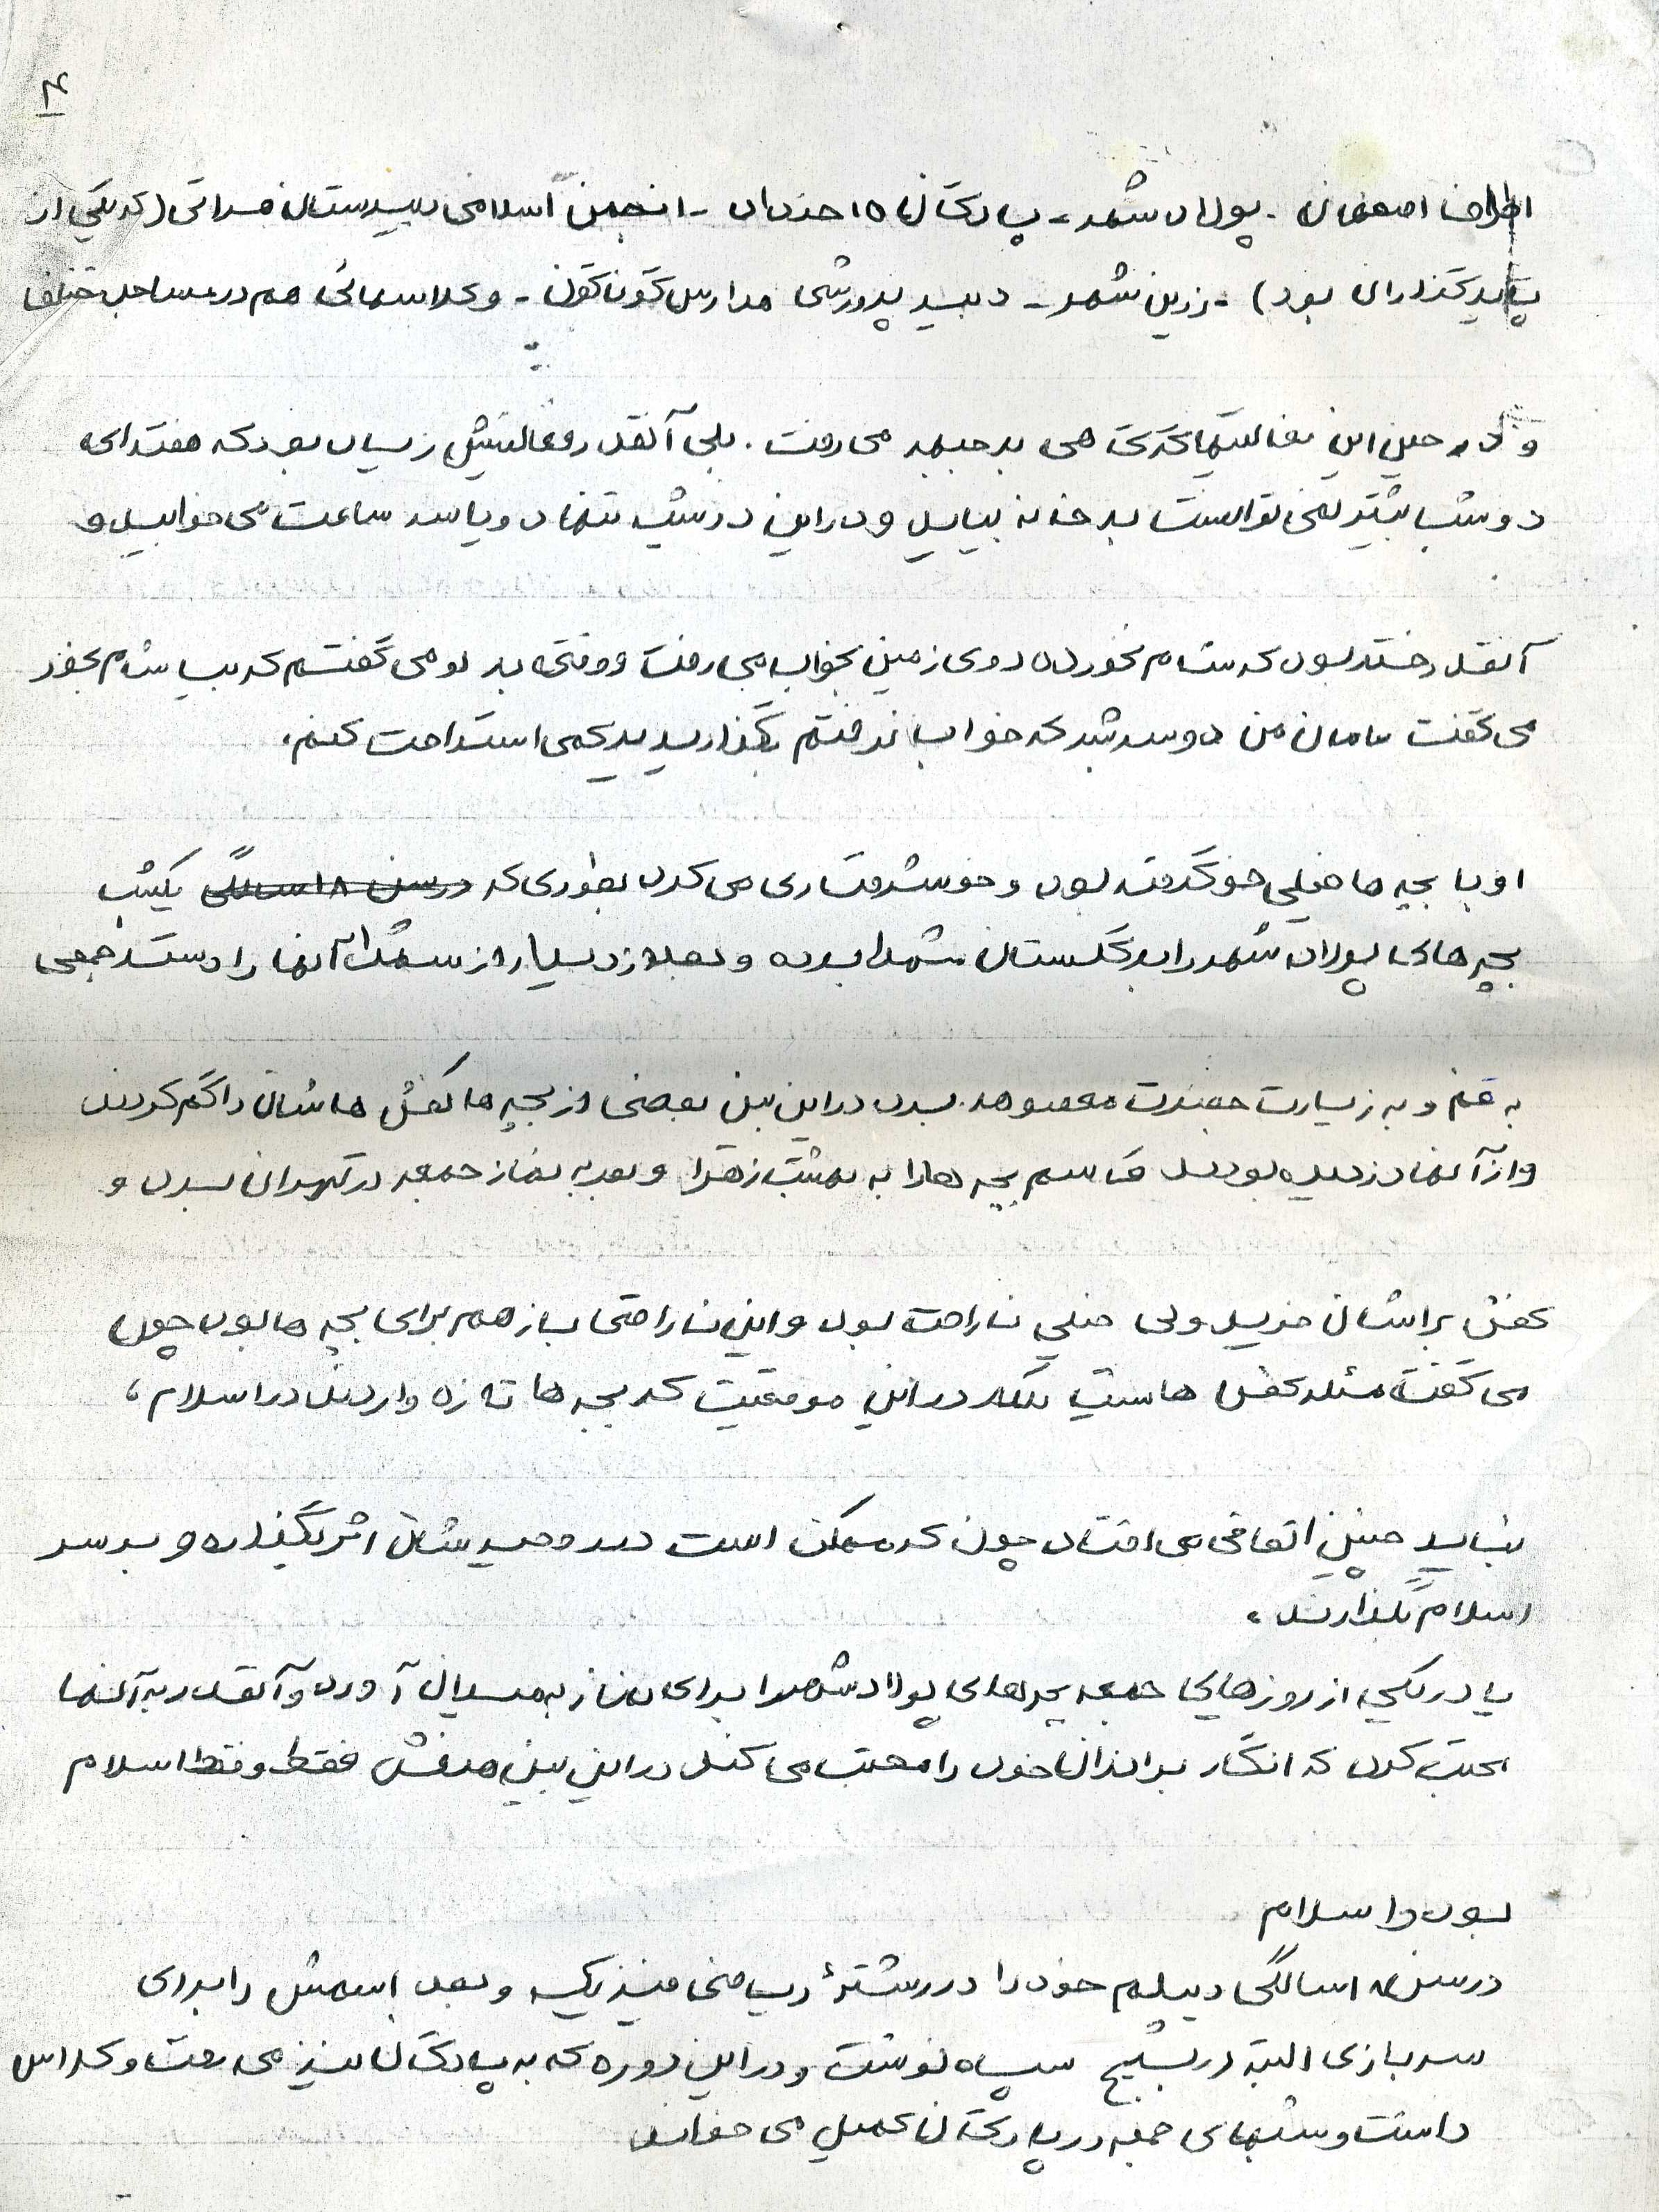 ۴
اطراف اصفهان - پولادشهر - پادگان ۱۵ خرداد - انجمن اسلامی دبیرستان هراتی (که یکی از
پایه گذاران بود) - زرین شهر - دبیر پرورشی مدارس گوناگون - و کلاسهائی هم در مساجد مختلف
و در حین این فعالیتها تک تک هی به جبهه می رفت . بلی آنقدر فعالیتش زیاد بود که هفته ای
دو شب بیشتر نمی توانست به خانه بیاید و در این دو شب تنها دو یا سه ساعت می خوابید و
آنقدر خسته بود که شام نخورده روی زمین بخواب می رفت و وقتی به او می گفتم که بیا شام بخور
می گفت مامان من دو سه شبه که خواب نرفتم بگذارید یه کمی استراحت کنم .
او با بچه ها خیلی خو گرفته بود و خوشرفتاری می کرد بطوری که در سن ۱۸ سالگی یکشب
بچه های پولاد شهر را به گلستان شهدا برده و بعد از دیدار از شهدا آنها را دسته جمعی
به قم و به زیارت حضرت معصومه برد در این بین بعضی از بچه ها کفش هاشان را گم کردند
و از آنها دزدیده بودند قاسم بچه ها را به بهشت زهرا و بعد به نماز جمعه در تهران برد و
کفش براشان خرید ولی خیلی ناراحت بود و این ناراحتی باز هم برای بچه ها بود چون
می گفت مسئله کفش ها نیست بلکه در این موقعیت که بچه ها تازه واردند در اسلام ،
نباید چنین اتفاقی می افتاد چون که ممکن است در روحیه شان اثر بگذاره و به سر
اسلام بگذارند .
یا در یکی از روزهای جمعه بچه های پولادشهر را برای نماز به میدان آورد و آنقدر به آنها
محبت کرد که انگار برادران خود را محبت می کند در این بین هدفش فقط و فقط اسلام
بود و اسلام
در سن ۱۸ سالگی دیپلم خود را در رشتهٔ ریاضی فیزیک و بعد اسمش را برای
سربازی البته در بسیج سپاه نوشت و در این دوره که به پادگان نیز می رفت و کلاس
داشت و شبهای جمعه در پادگان کمیل می خواند